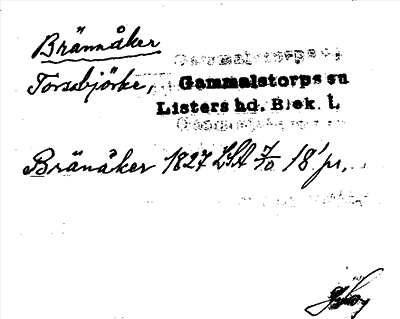 Brännåker
Torsabjörke, Gammalstorps sn
Listers hd. Blek. l.
Bränåker 1827 LSA 18 pr.